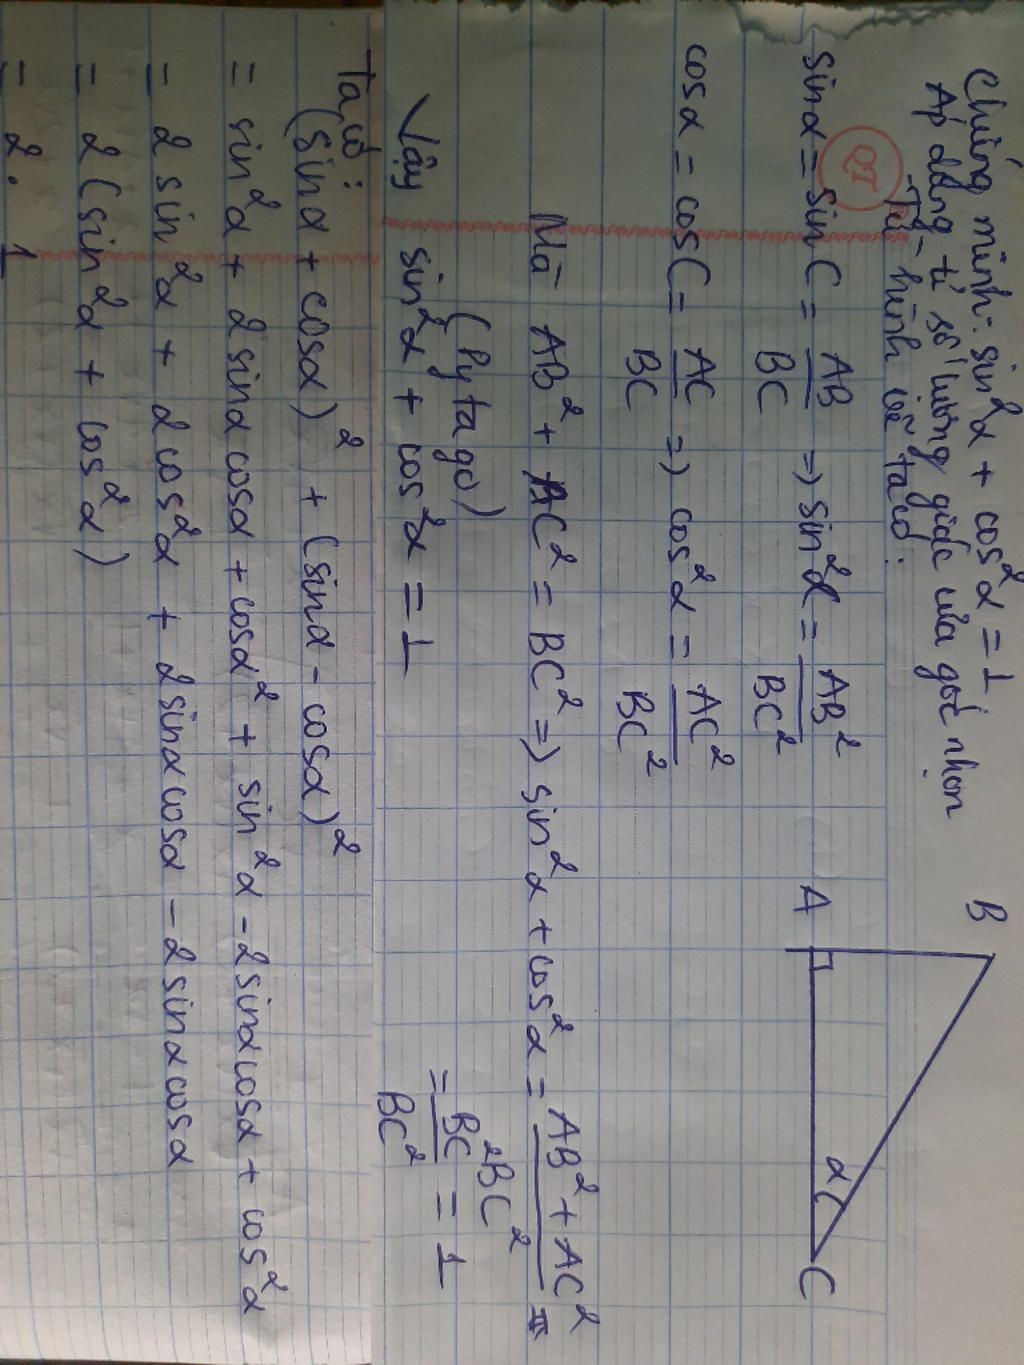 Chứng minh: sin²α + cos²α = 1
Áp dụng tỉ số lượng giác của góc nhọn
- Từ hình vẽ ta có:
B
A
α
C
sinα = sin C = AB/BC => sin²α = AB²/BC²
cosα = cosC = AC/BC => cos²α = AC²/BC²
Mà AB² + AC² = BC² => sin²α + cos²α = AB² + AC²/BC² =
(Pytago)
= BC²/BC² = 1
Vậy sin²α + cos²α = 1
Ta có:
(sinα + cosα)² + (sinα - cosα)²
= sin²α + 2sinα cosα + cosα² + sin²α - 2sinαcosα + cos²α
= 2 sin²α + 2cos²α + 2sinαcosα - 2sinαcosα
= 2 (sin²α + cos²α)
= 2. 1